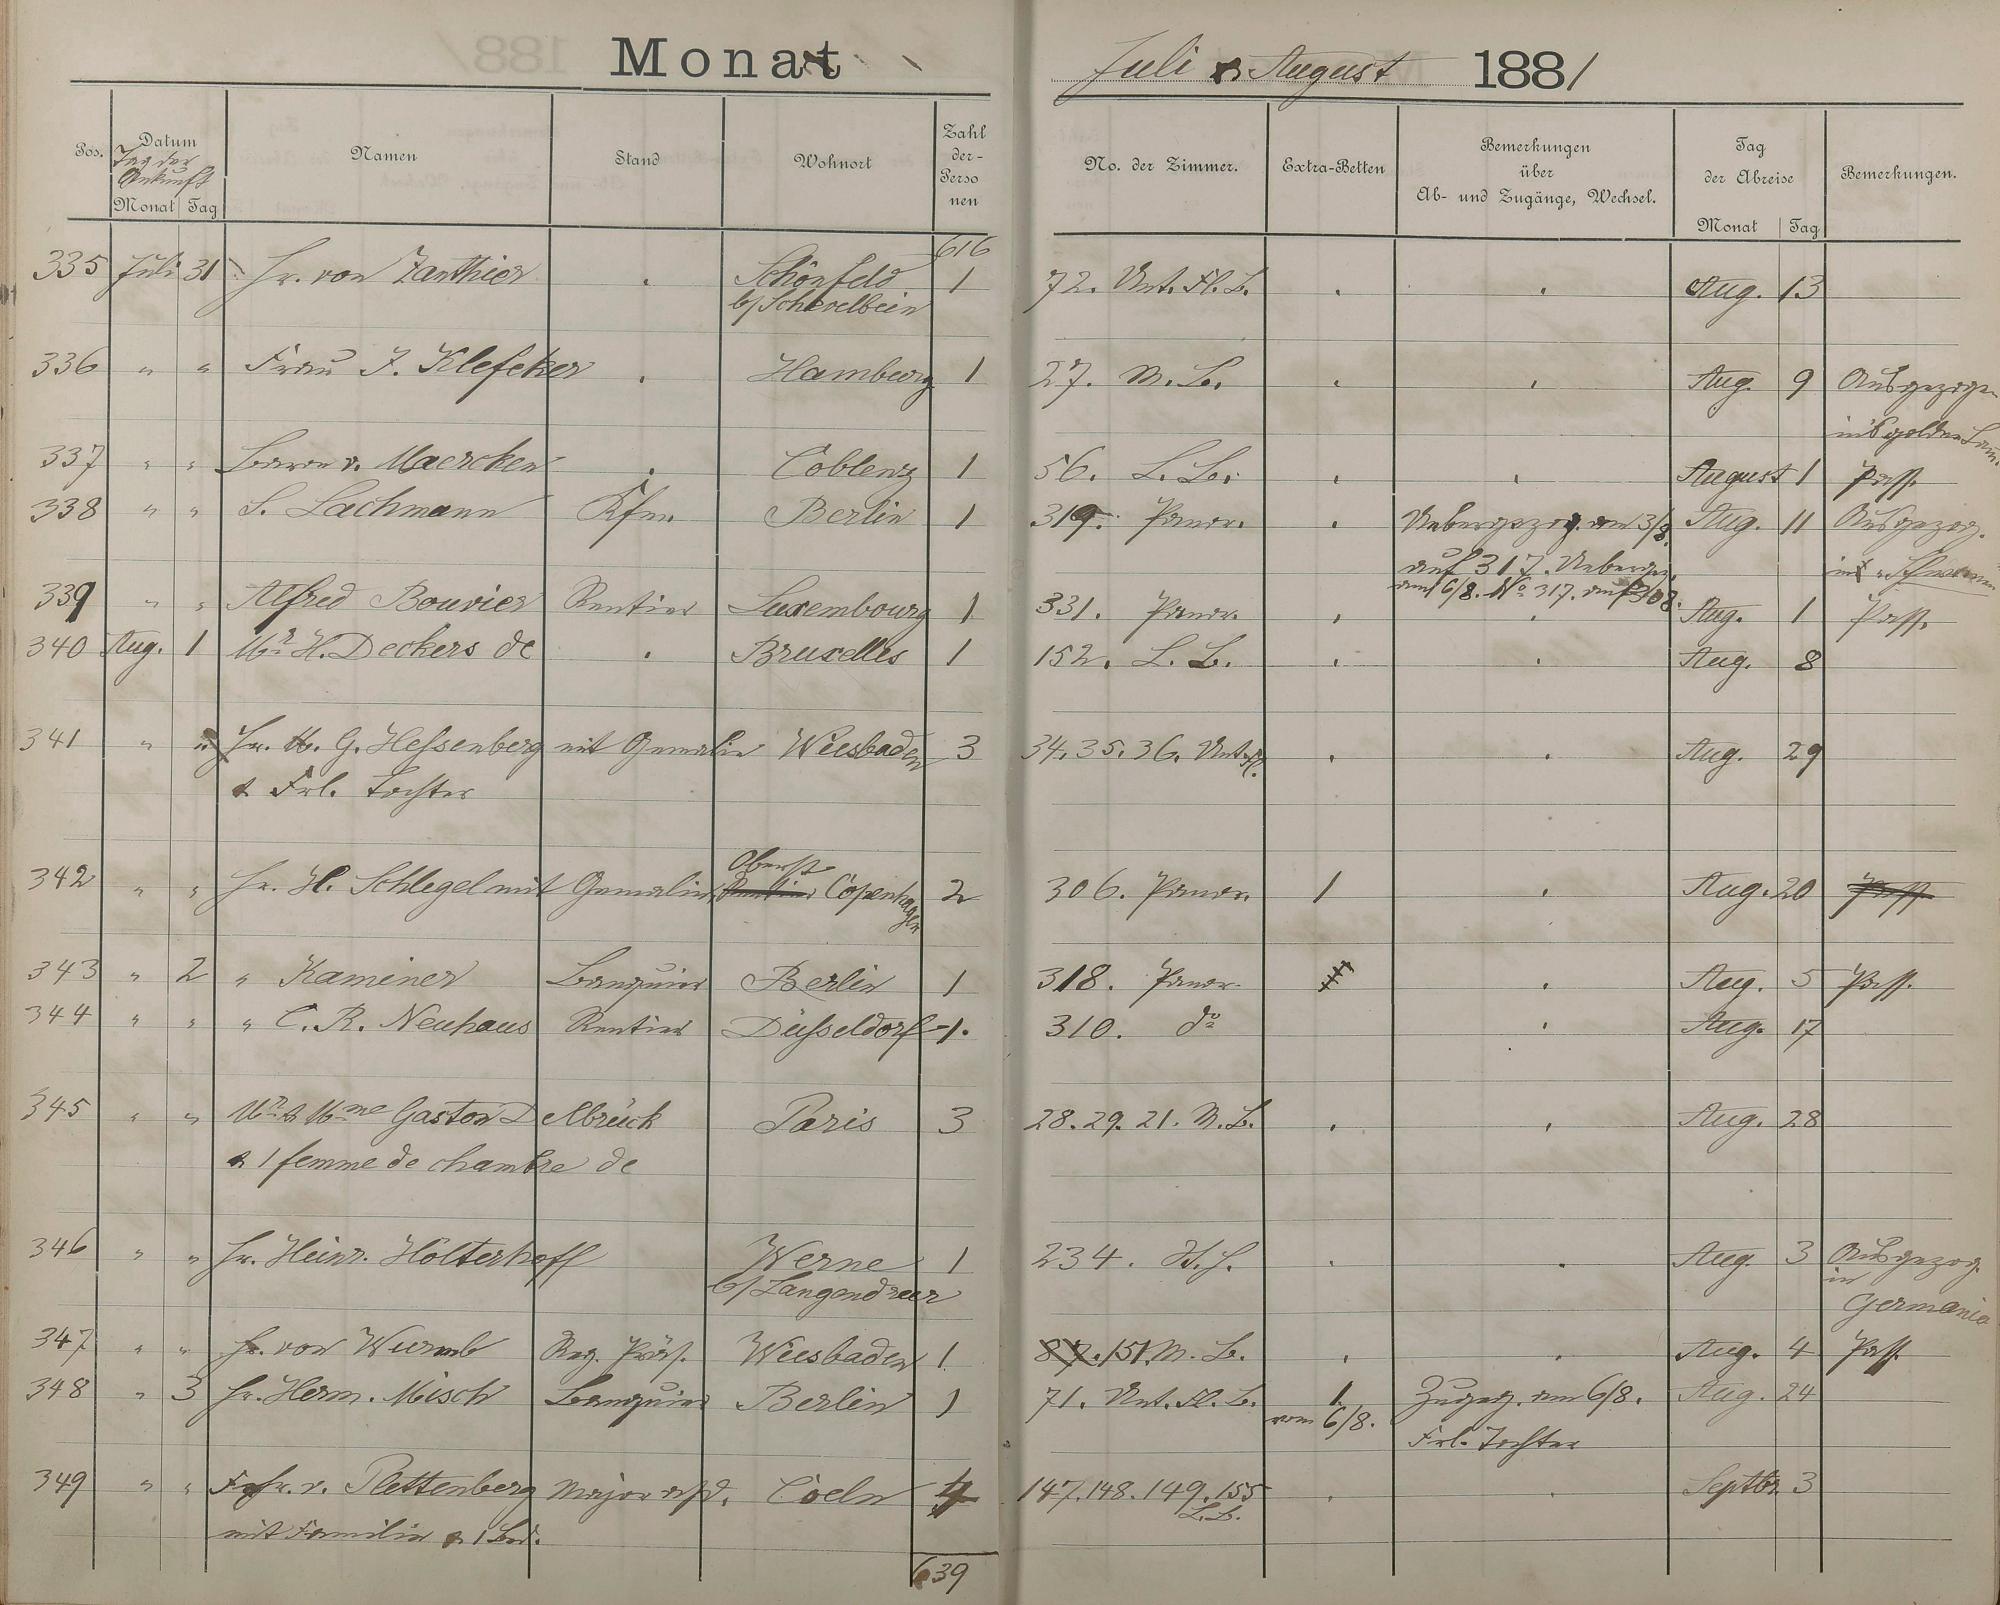 Monat
Juli & August 1881
Pos. Datum Namen Stand Wohnort Zahl der Personen No. der Zimmer. Extra-Betten Bemerkungen über Ab- und Zugänge, Wechsel. Tag der Abreise Bemerkungen.
Tag der Ankunft
Monat Tag Monat Tag
616
335 Juli 31 Hr. von Zanthier " Schönfeld 1 72. Unt. Fl. B. " " Aug. 13
b/Schevelbein
336 " " Frau J. Klefeker " Hamburg 1 27. M. B. " " Aug. 9 Ausgezogen
in's goldne
337 " " Baron v. Maercken " Coblenz 1 56. L. B. " " August 1 Pass.
338 " " S. Lachmann Kfm. Berlin 1 319. Panor. " Uebergezog. am 3/8. Aug. 11 Ausgezog.
auf 317. Ueberge.
am 6/8. No 317. auf 308.
339 " " Alfred Bouvier Rentier Luxembourg 1 331. Panor. " " Aug. 1 Pass.
340 Aug. 1 Mr H. Deckers de " Bruxelles 1 152. L. B. " " Aug. 8
341 " " Hr. M. G. Hessenberg mit Gemalin Wiesbaden 3 34. 35. 36. Unt. Fl. " " Aug. 29
& Frl. Tochter
Oberst
342 " " Hr. H. Schlegel mit Gemalin Rentier Copenhagen 2 306. Panor. 1 " Aug. 20 Pass.
343 " 2 " Kaminer Banquier Berlin 1 318. Panor. " Aug. 5 Pass.
344 " " " C. R. Neuhaus Rentier Düsseldorf 1. 310. do " Aug. 17
345 " " Mr & Mme Gaston Delbrück Paris 3 28. 29. 21. M. B. " " Aug. 28
& 1 femme de chambre de
346 " " Hr. Heinr. Hölterhoff Werne 1 234. H. " " Aug. 3 Ausgezog.
b/Langendreer in
Germania
347 " " Hr. von Wurmb Reg. Präs. Wiesbaden 1 87. 151. M. B. " " Aug. 4 Pass.
348 " 3 Hr. Herm. Misch Banquier Berlin 1 71. Unt. Fl. B. 1. Zugez. am 6/8. Aug. 24
vom 6/8. Frl. Tochter
349 " " Frhr. v. Plettenberg Major a/D. Coeln 4 147. 148. 149. 155 " " Septbr. 3
L. B.
mit Familie & 1 Bed.
639